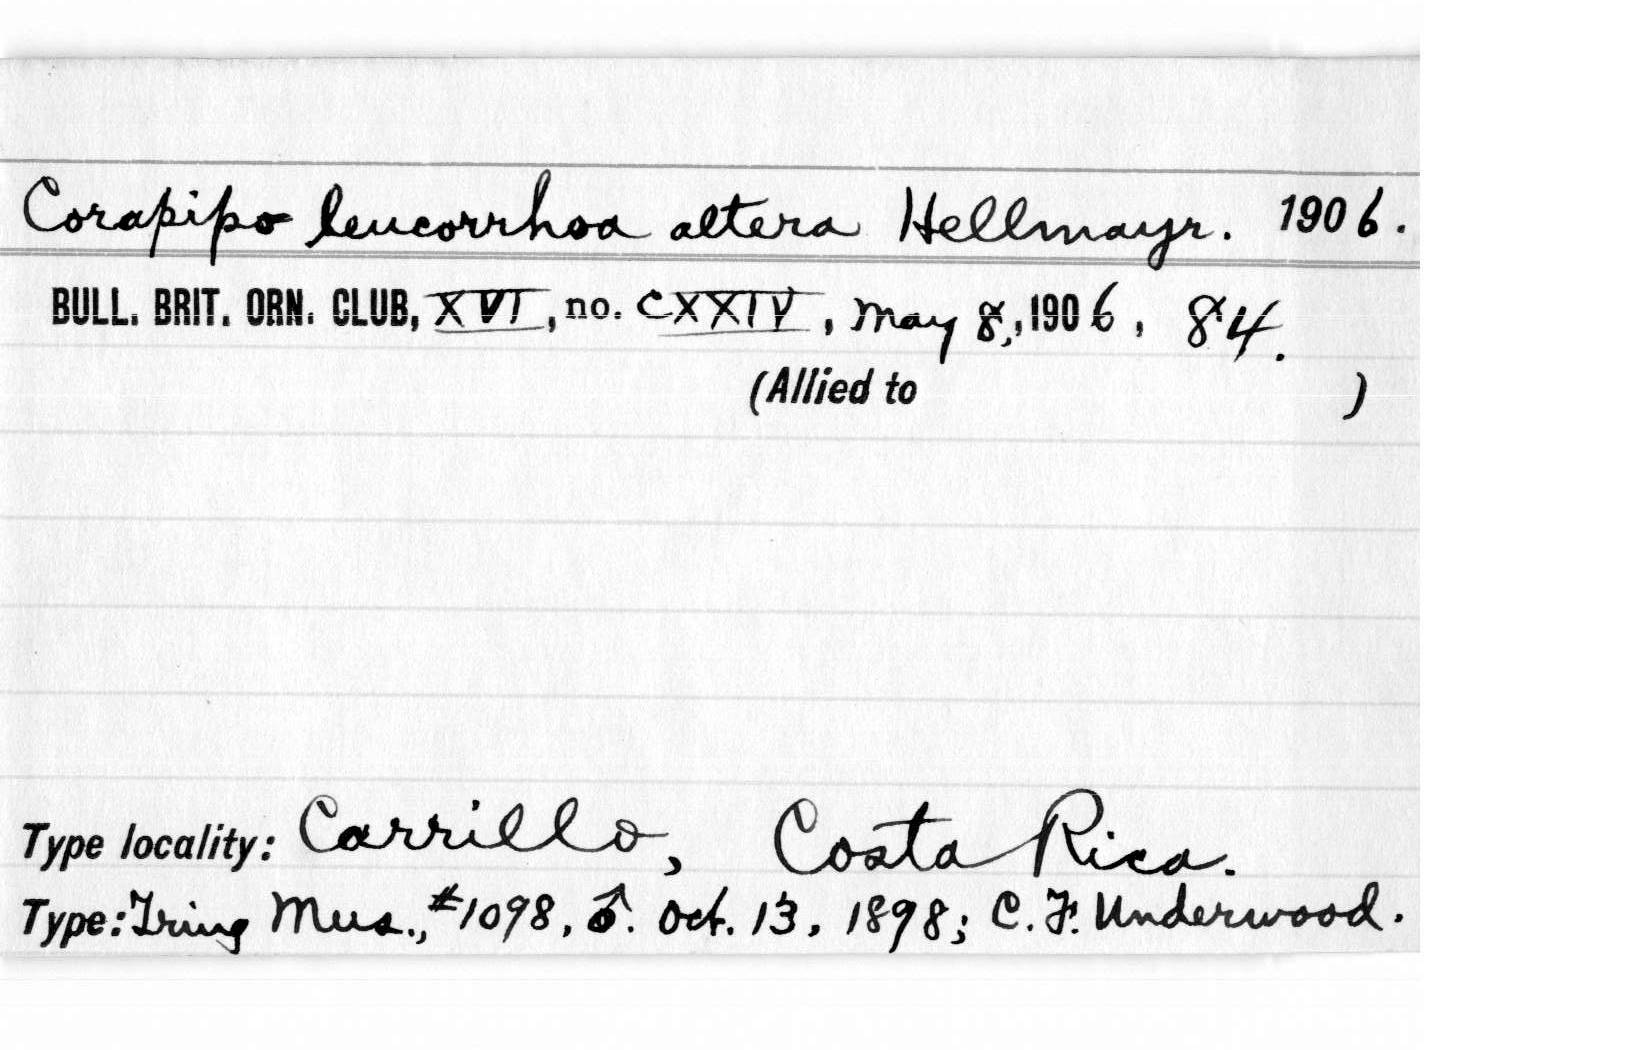 Corapipo leucorrhoa altera Hellmayr. 1906.
BULL. BRIT. ORN. CLUB, XVI, no. CXXIV, May 8, 1906, 84.
(Allied to )
Type locality: Carrillo, Costa Rica.
Type: Tring Mus., #1098, ♂. Oct. 13, 1898; C. F. Underwood.